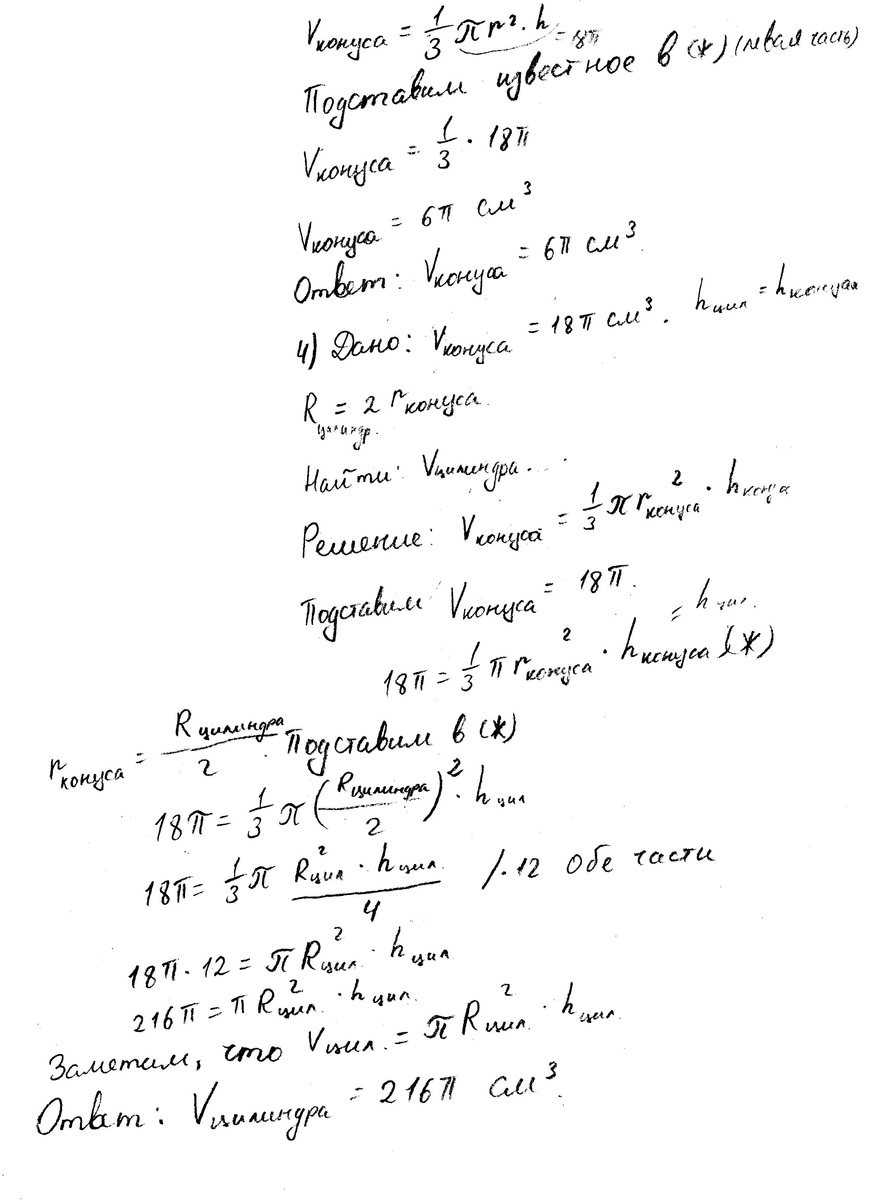 Vконуса = 1/3 πr² · h = 18π
Подставим известное в (*) (левая часть)
Vконуса = 1/3 · 18π
Vконуса = 6π см³
Ответ: Vконуса = 6π см³
4) Дано: Vконуса = 18π см³. hцил = hконуса
Rцилиндр. = 2 rконуса.
Найти: Vцилиндра.
Решение: Vконуса = 1/3 π rконуса² · hконуса
Подставим Vконуса = 18π.
18π = 1/3 π rконуса² · hконуса (*) = hцил.
rконуса = Rцилиндра/2. Подставим в (*)
18π = 1/3 π (Rцилиндра/2)² · hцил
18π = 1/3 π Rцил² · hцил./4 /·12 обе части
18π · 12 = π Rцил.² · hцил
216π = π Rцил.² · hцил.
Заметим, что Vцил. = π Rцил.² · hцил.
Ответ: Vцилиндра = 216π см³.